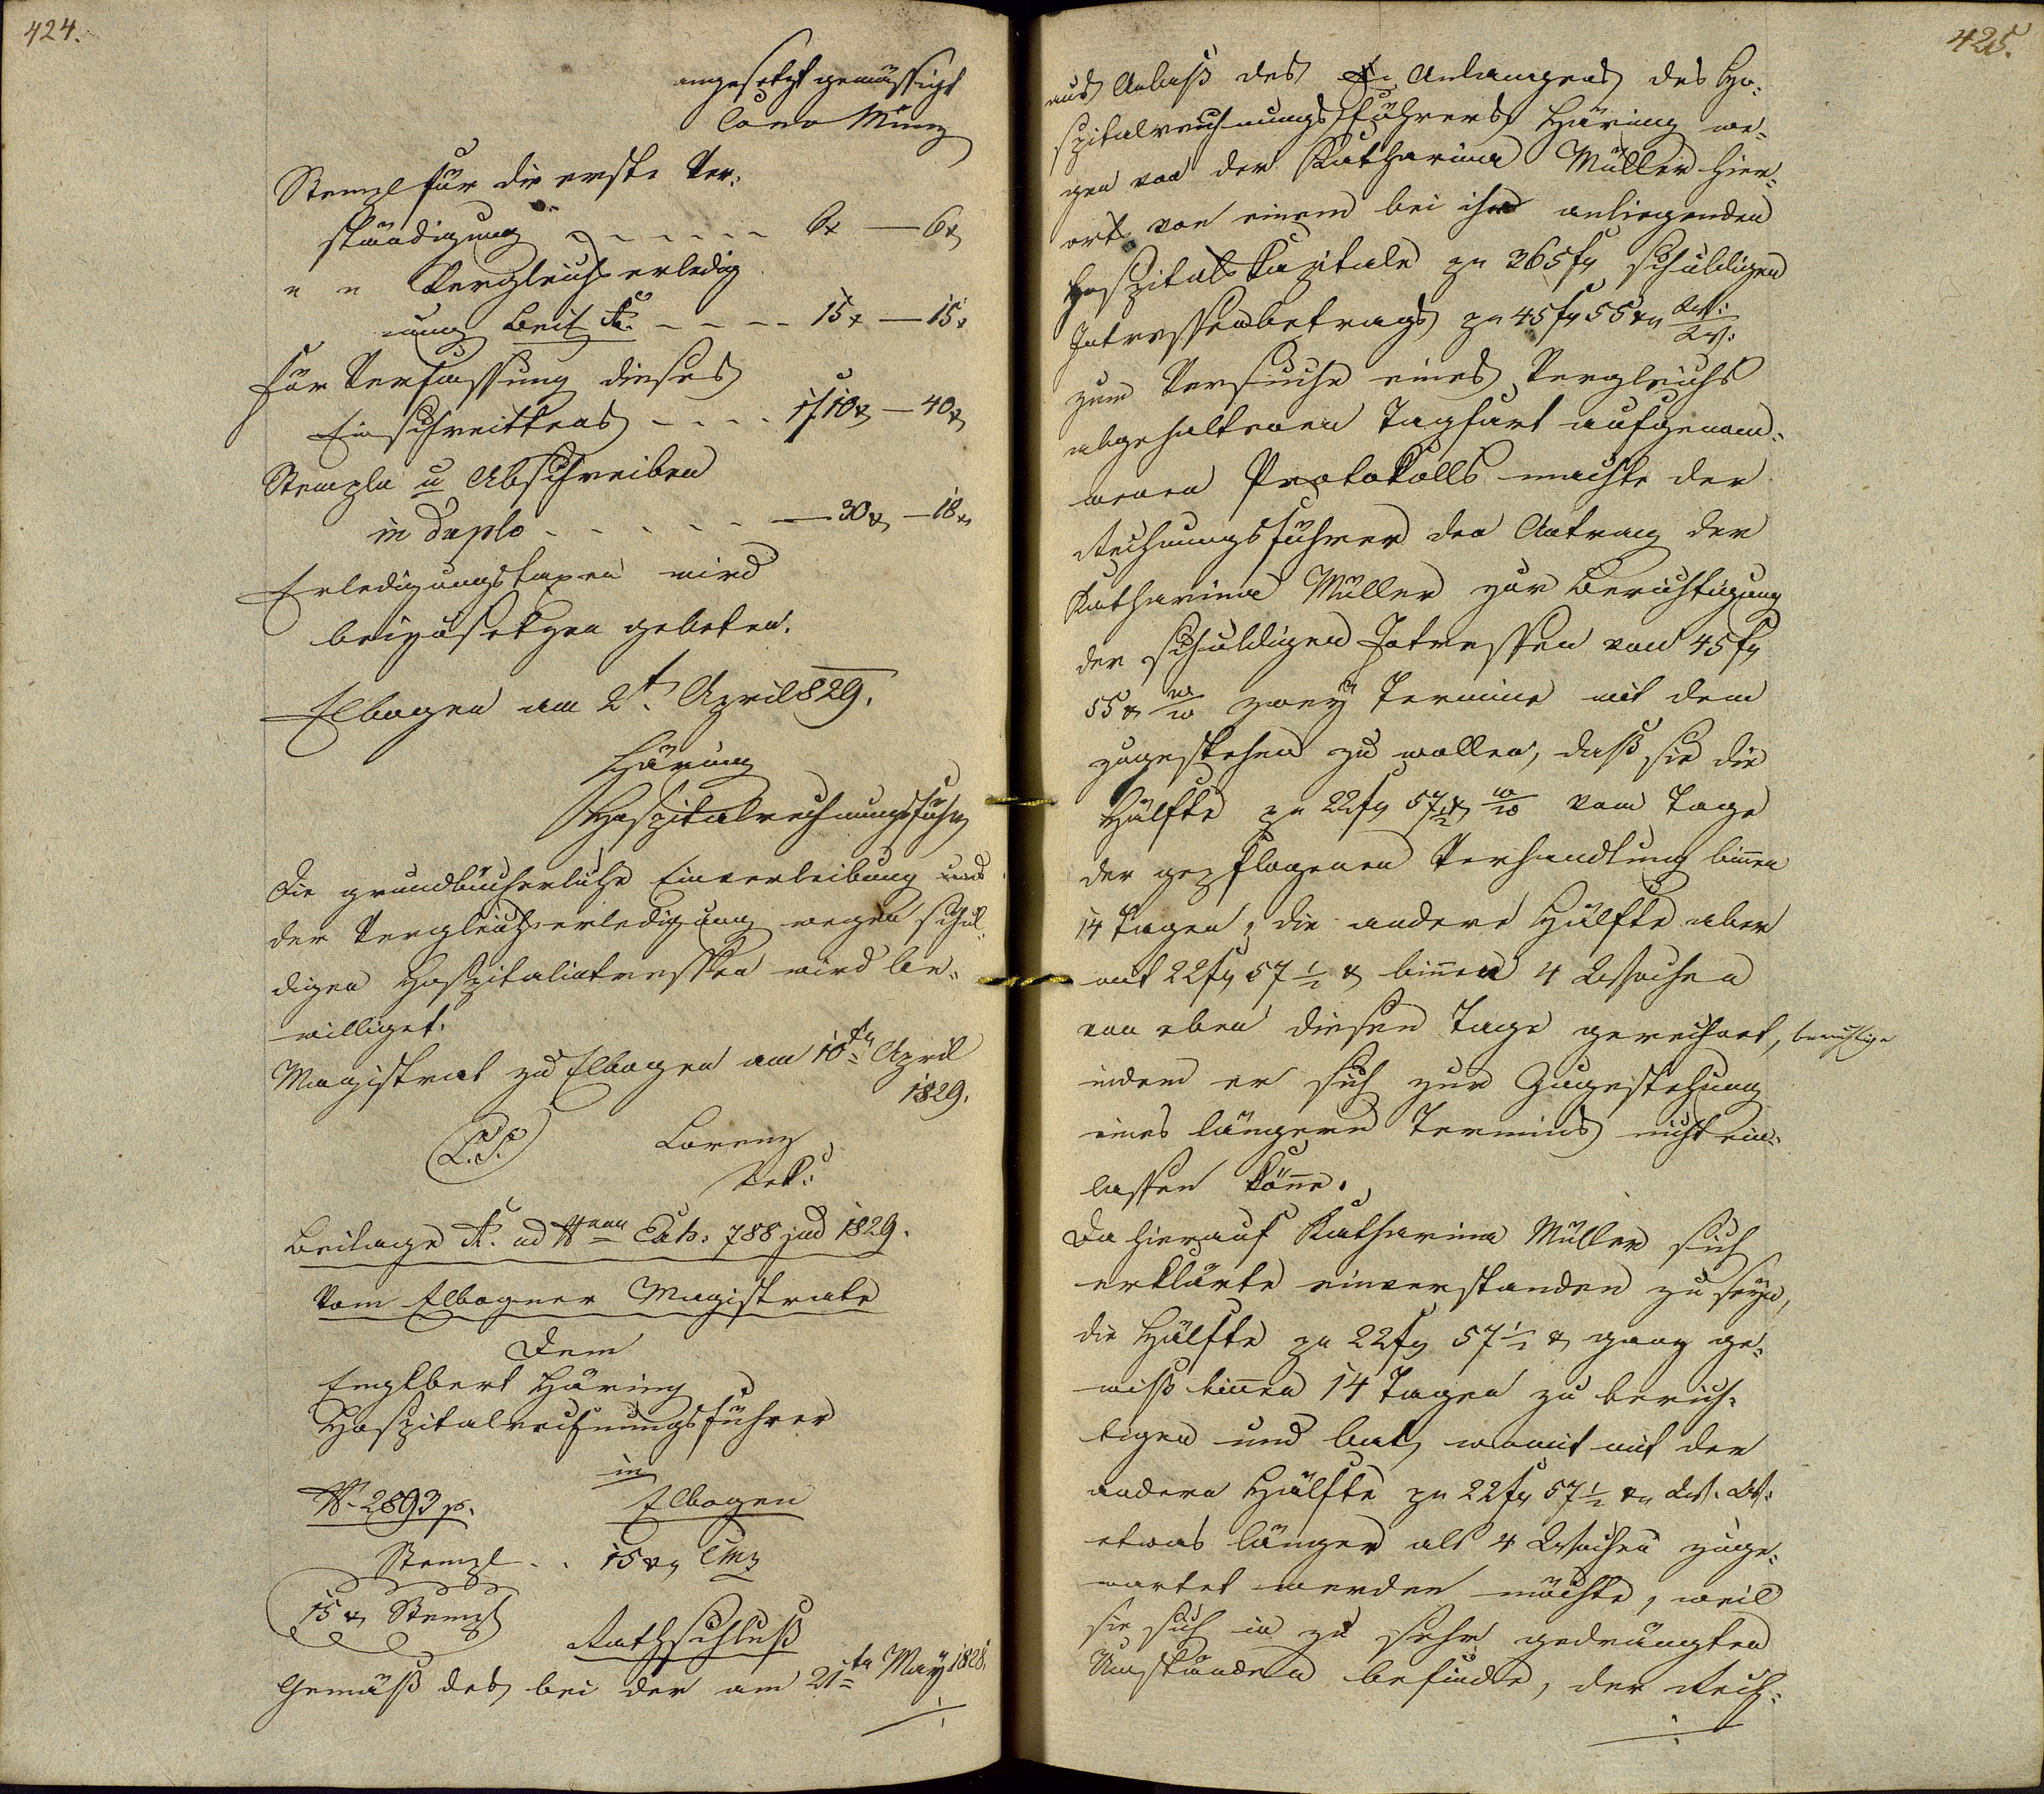 424.
angesetzt gemässigt
Conv Münz
Stempl für die erste Ver:
ständigung - - - - - - 6x — 6x
" " Vergleichserledig
ung Beil A. - - - - 15x — 15x
für Verfassung dieses
Einschreittens - - - - 1f 10x — 40x
Stempln u Abschreiben
in duplo - - - - - — 30x — 18x
Erledigungstaxen wird
beizusetzen gebeten.
Elbogen am 2t. April 829.
Häring
Hospitalrechnungsführ
Die grundbücherliche Einverleibung
der Vergleichserledigung wegen schul=
digen Hospitalintressen wird be=
williget.
Magistrat zu Elbogen am 10ten April
1829.
L.S. Lorenz
Beilage A. ad Nrum Exh: 788 jud 1829.
Vom Elbogner Magistrate
Dem
Englbert Häring
Hospitalrechnungsführer
in
N. 2893 p. Elbogen
Stempl . . 15 xr CMz
15 x Stempl
Rathschluß
Gemäß des bei der am 21ten May 1828.
425.
aus Anlaß des Anlangens des Ho:
spitalrechnungsführers Häring we=
gen von der Katharina Müller hier=
orts von einem bei ihr anliegenden
Hospitals Kapitale pr 365 fr schuldigen
Intressenbetrags pr 45 fr 55 xr W:W:
zum Versuche eines Vergleichs
abgehaltenen Tagfart aufgenom=
menen Protokolls machte der
Rechnungsführer den Antrag der
Katharina Müller zur Berichtigung
der schuldigen Intressen von 45 fr
55 x W W zwey Termine mit dem
zugestehen zu wollen, daß sie die
Hälfte pr 22 fr 57 1/2 x W W vom Tage
der gepflogenen Verhandlung binnen
14 Tagen, die andere Hälfte aber
mit 22 fr 57 1/2 x binnen 4 Wochen
von eben diesen Tage gerechnet, berichtige
indem er sich zur Zugestehung
eines längern Termins nicht ein=
lassen könne.
Da hierauf Katharina Müller sich
erklärte einverstanden zu seyn,
die Hälfte pr 22 fr 57 1/2 x ganz ge=
wiß binnen 14 Tagen zu berich=
tigen und bat, womit mit der
andern Hälfte pr 22 fr 57 1/2 xr W. W:
etwas länger als 4 Wochen zuge=
wartet werden möchte, weil
sie sich in zu sehr gedrängten
Umständen befinde, der Rech=